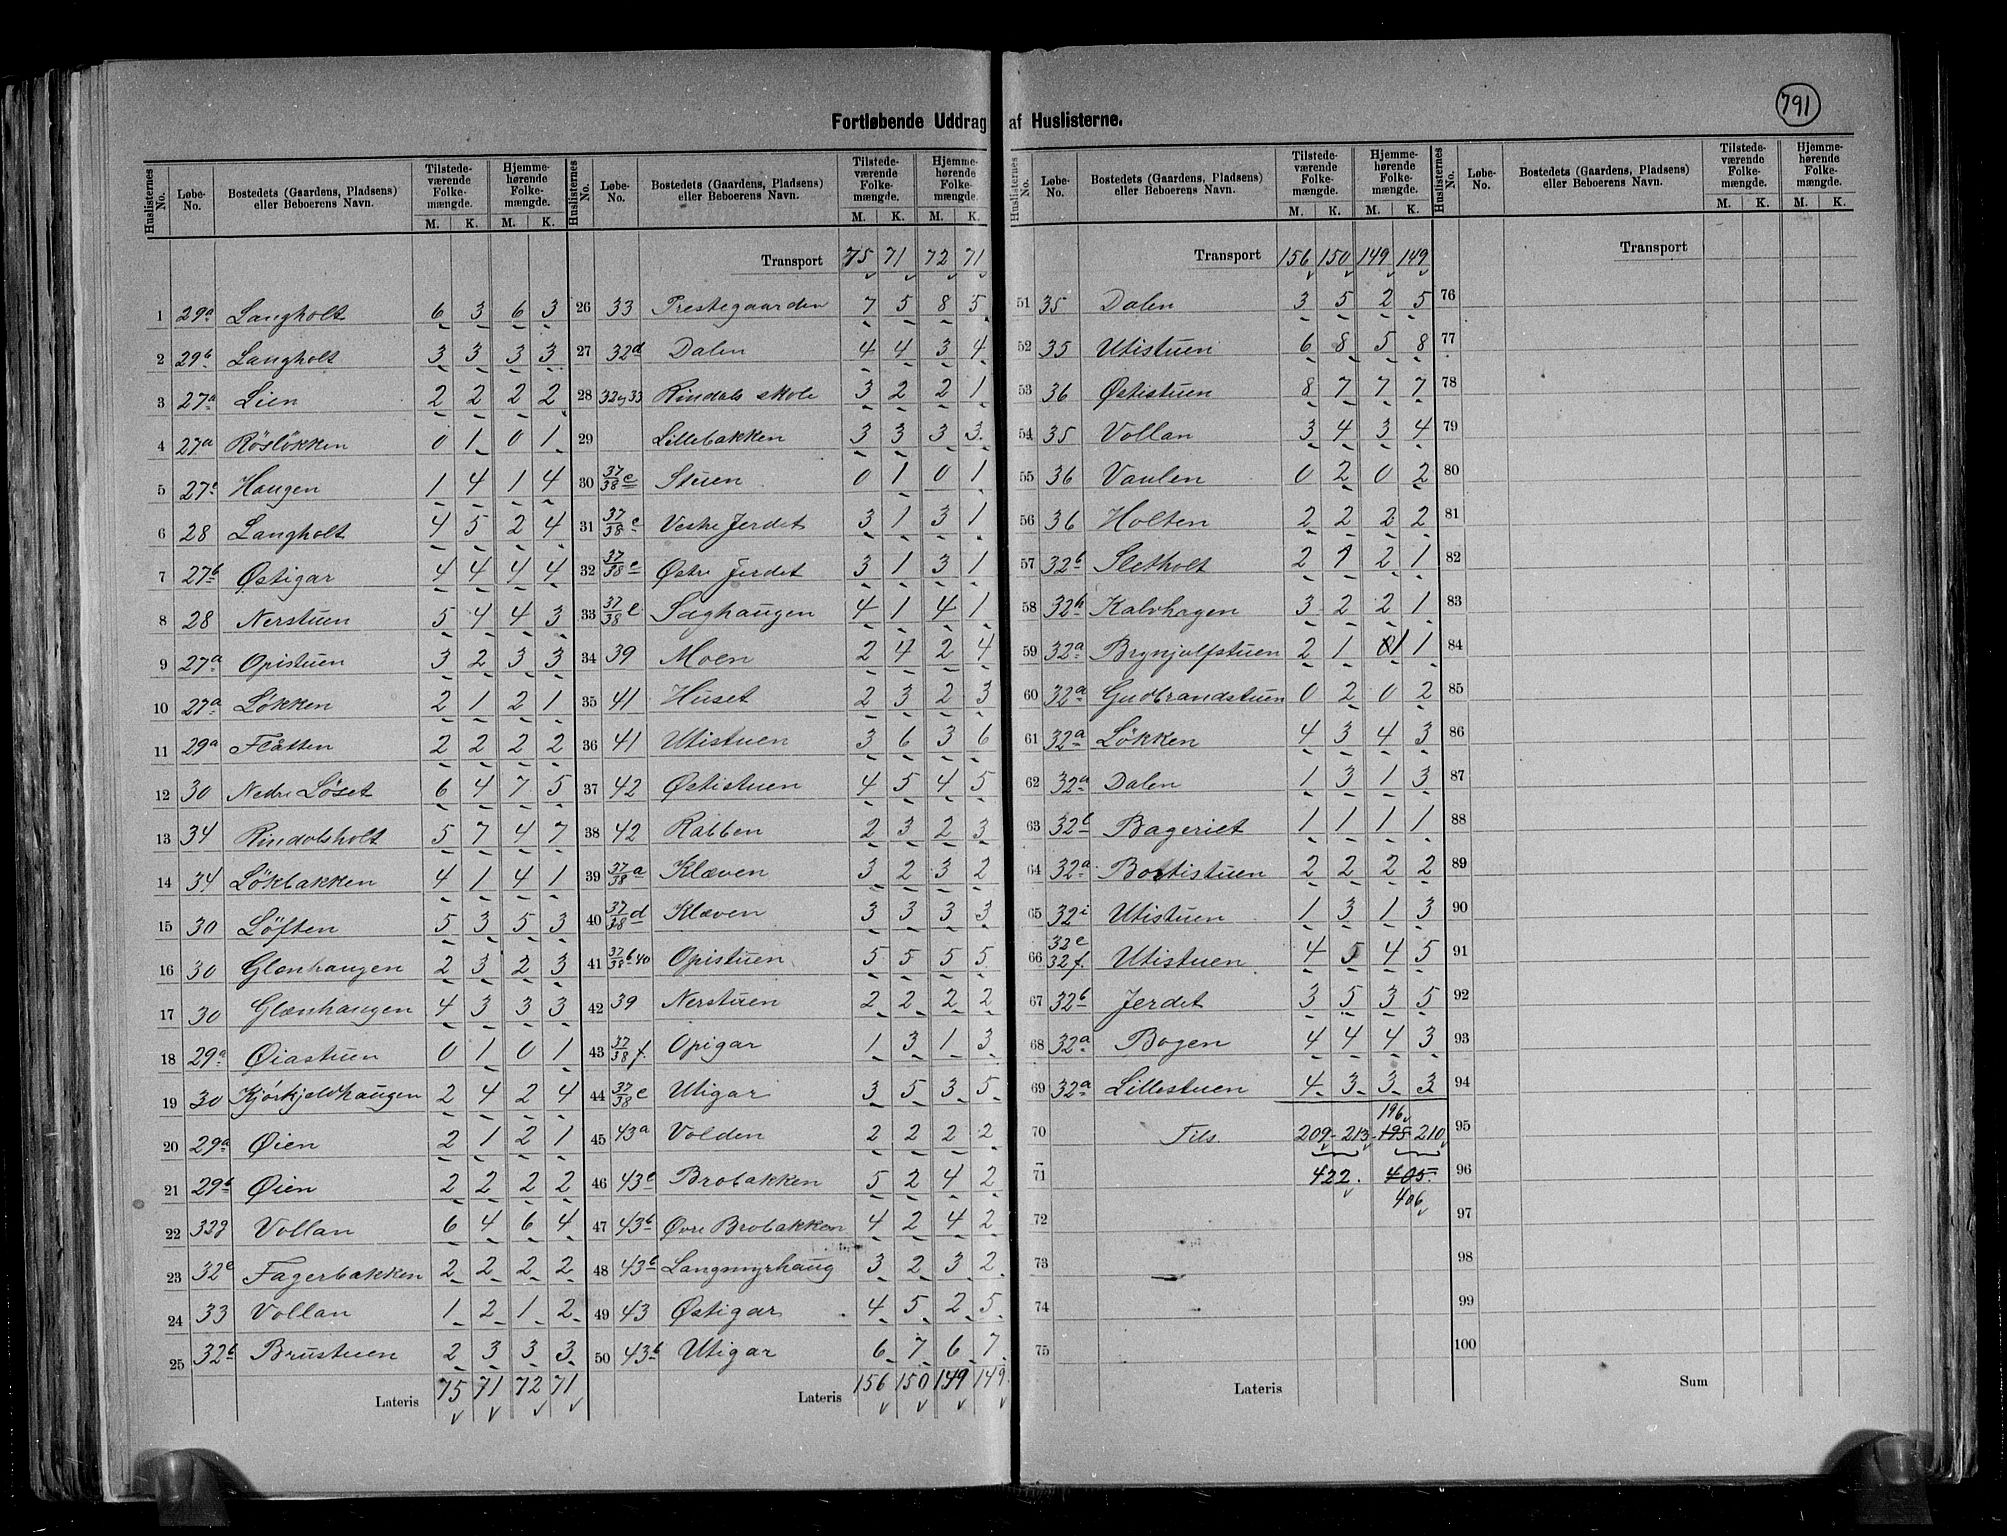 791
Fortløbende Uddrag af Huslisterne.
Huslisternes No. | Løbe-No. | Bostedets (Gaardens, Pladsens) eller Beboerens Navn. | Tilstedeværende Folkemængde. M. K. | Hjemmehørende Folkemængde. M. K.
1 29a Langholt 6 3 6 3
2 29b Langholt 3 3 3 3
3 27a Lien 2 2 2 2
4 27a Røsløkken 0 1 0 1
5 27c Haugen 1 4 1 4
6 28 Langholt 4 5 2 4
7 27b Østigar 4 4 4 4
8 28 Nerstuen 5 4 4 3
9 27a Opistuen 3 2 3 3
10 27a Løkken 2 1 2 1
11 29a Flåtten 2 2 2 2
12 30 Nedre Løset 6 4 7 5
13 34 Rindalsholt 5 7 4 7
14 34 Løkbakken 4 1 4 1
15 30 Løften 5 3 5 3
16 30 Glænhaugen 2 3 2 3
17 30 Glænhaugen 4 3 3 3
18 29a Øiastuen 0 1 0 1
19 30 Kjørkjelvhaugen 2 4 2 4
20 29a Øien 2 1 2 1
21 29b Øien 2 2 2 2
22 32g Vollan 6 4 6 4
23 32e Fagerbakken 2 2 2 2
24 33 Vollan 1 2 1 2
25 32b Brustuen 2 3 3 3
Lateris 75 71 72 71
Transport 75 71 72 71
26 33 Prestegaarden 7 5 8 5
27 32d Dalen 4 4 3 4
28 32 og 33 Rindals skole 3 2 2 1
29 Lillebakken 3 3 3 3
30 37/38 e Stuen 0 1 0 1
31 37/38 e Vestre Jerdet 3 1 3 1
32 37/38 e Østre Jerdet 3 1 3 1
33 37/38 e Saghaugen 4 1 4 1
34 39 Moen 2 4 2 4
35 41 Huset 2 3 2 3
36 41 Utistuen 3 6 3 6
37 42 Østistuen 4 5 4 5
38 42 Rabben 2 3 2 3
39 37/38 a Klæven 3 2 3 2
40 37/38 d Klæven 3 3 3 3
41 37/38 b 40 Opistuen 5 5 5 5
42 39 Nerstuen 2 2 2 2
43 37/38 f. Opigar 1 3 1 3
44 37/38 e Utigar 3 5 3 5
45 43a Volden 2 2 2 2
46 43c Brobakken 5 2 4 2
47 43b Øvre Brobakken 4 2 4 2
48 43b Langmyrhaug 3 2 3 2
49 43 Østigar 4 5 2 5
50 43b Utigar 6 7 6 7
Lateris 156 150 149 149
Huslisternes No. | Løbe-No. | Bostedets (Gaardens, Pladsens) eller Beboerens Navn. | Tilstedeværende Folkemængde. M. K. | Hjemmehørende Folkemængde. M. K.
Transport 156 150 149 149
51 35 Dalen 3 5 2 5
52 35 Utistuen 6 8 5 8
53 36 Østistuen 8 7 7 7
54 35 Vollan 3 4 3 4
55 36 Vaulen 0 2 0 2
56 36 Holten 2 2 2 2
57 32b Sletholt 2 1 2 1
58 32h Kalvhagen 3 2 2 1
59 32a Brynjulfstuen 2 1 1 1
60 32a Gudbrandstuen 0 2 0 2
61 32a Løkken 4 3 4 3
62 32a Dalen 1 3 1 3
63 32b Bageriet 1 1 1 1
64 32a Bortistuen 2 2 2 2
65 32i Utistuen 1 3 1 3
66 32e 32f. Utistuen 4 5 4 5
67 32b Jerdet 3 5 3 5
68 32a Bogen 4 4 4 3
69 32a Lillestuen 4 3 3 3
196
70 Tils. 209 213 195 210
71 422. 405.
406
72
73
74
75
Lateris
Transport
76
77
78
79
80
81
82
83
84
85
86
87
88
89
90
91
92
93
94
95
96
97
98
99
100
Sum